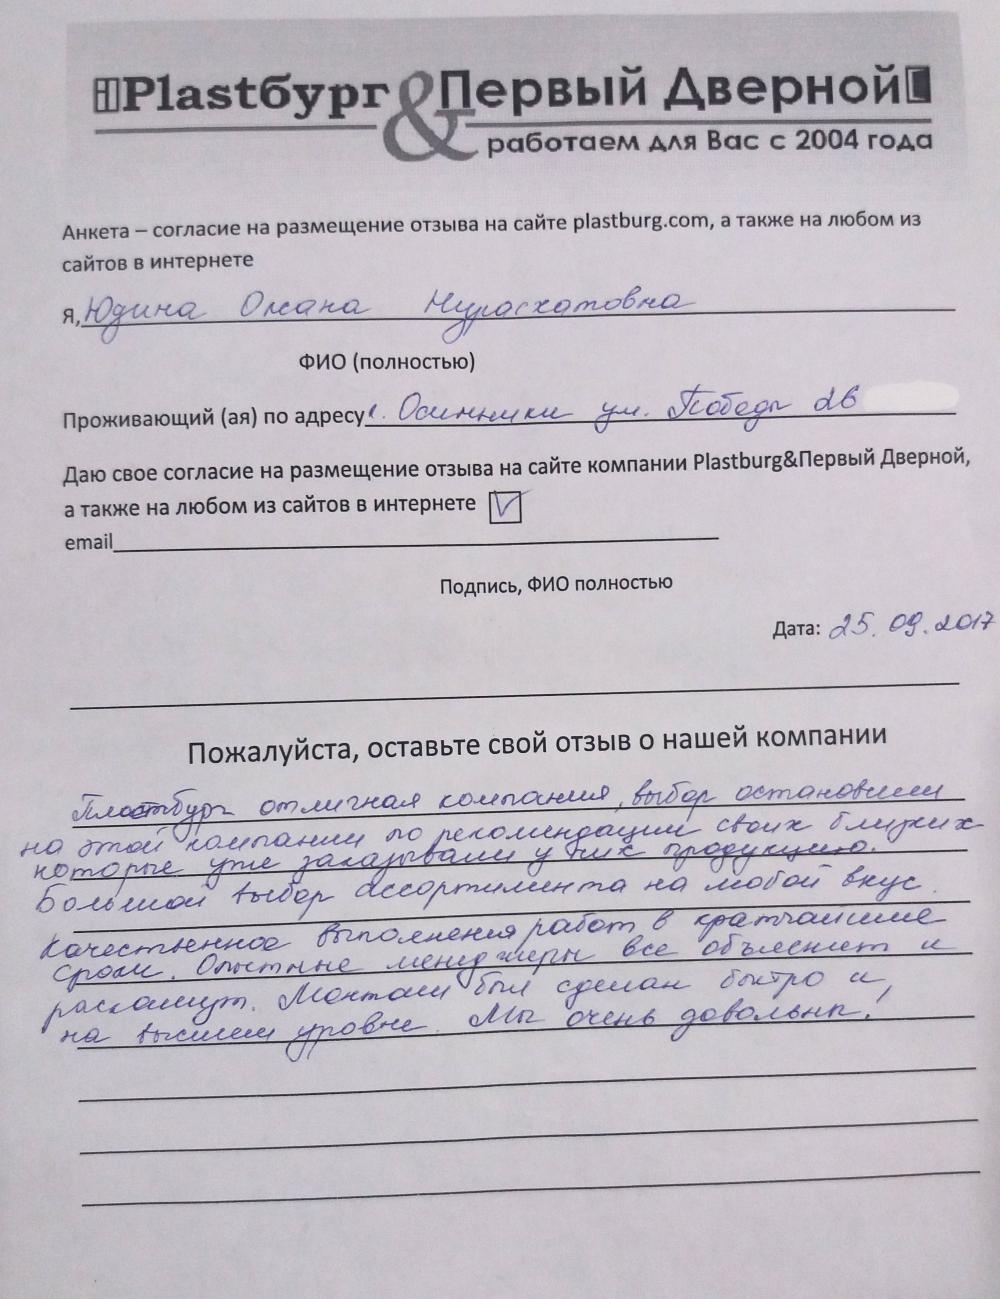 Plastбург & Первый Дверной
работаем для Вас с 2004 года
Анкета – согласие на размещение отзыва на сайте plastburg.com, а также на любом из
сайтов в интернете
Я, Юдина Оксана Мурасхатовна
ФИО (полностью)
Проживающий (ая) по адресу г. Осинники ул. Победы 26
Даю свое согласие на размещение отзыва на сайте компании Plastburg&Первый Дверной,
а также на любом из сайтов в интернете V
email
Подпись, ФИО полностью
Дата: 25.09.2017
Пожалуйста, оставьте свой отзыв о нашей компании
Пластбург отличная компания, выбор остановили
на этой компании по рекомендации своих близких
которые уже заказывали у них продукцию.
Большой выбор ассортимента на любой вкус.
Качественное выполнения работ в кратчайшие
сроки. Опытные менеджеры все объяснят и
раскажут. Монтаж был сделан быстро и,
на высшем уровне. Мы очень довольны!